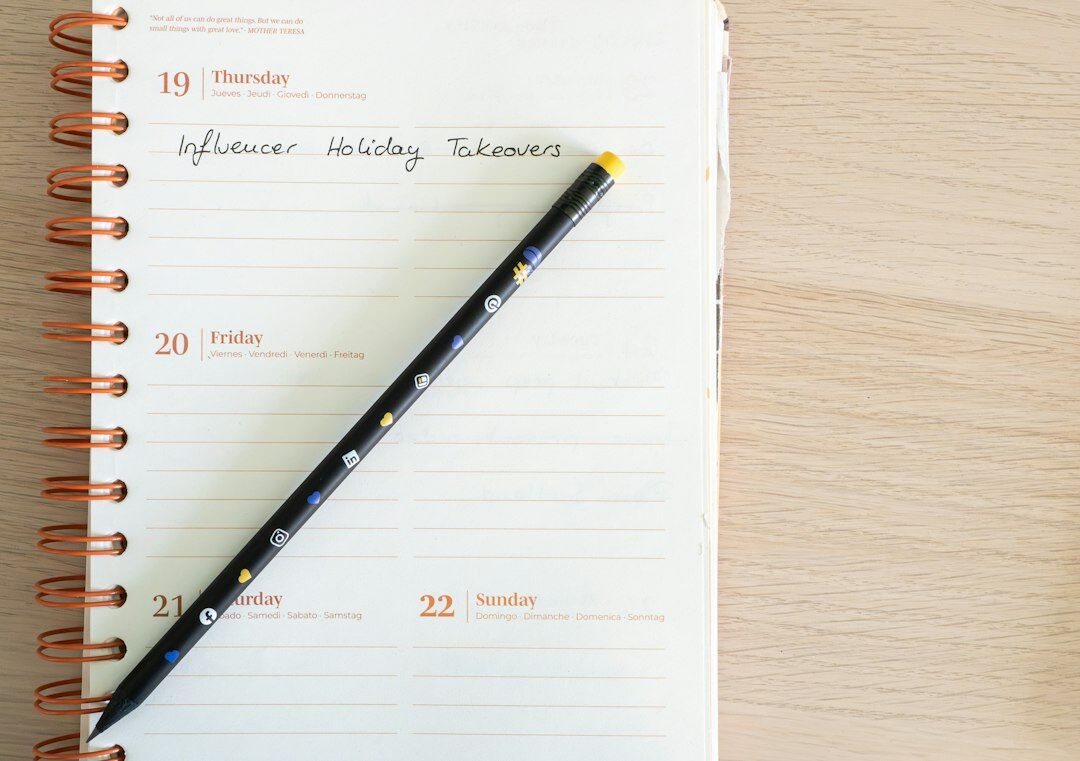 "Not all of us can do great things. But we can do
small things with great love." - MOTHER TERESA
19 Thursday
Jueves · Jeudi · Giovedì · Donnerstag
Influencer Holiday Takeovers
20 Friday
Viernes · Vendredi · Venerdì · Freitag
21
Samedi · Sabato · Samstag
22 Sunday
Domingo · Dimanche · Domenica · Sonntag
in